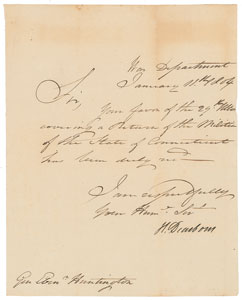 War Department
January 11th 1804
Sir,
Your favor of the 29th Ulto
covering a Return of the Militia
of the State of Connecticut
has been duly
I am respectfully
Your Humb. Ser
H. Dearborn
Gen Eben Huntington